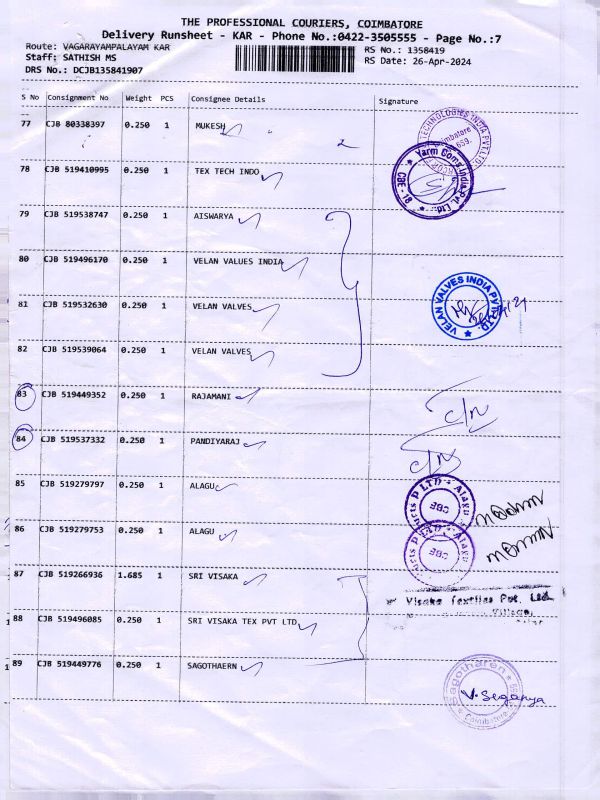 THE PROFESSIONAL COURIERS, COIMBATORE
Delivery Runsheet - KAR - Phone No.:0422-3505555 - Page No.:7
Route: VAGARAYAMPALAYAM KAR
RS No.: 1358419
Staff: SATHISH MS
RS Date: 26-Apr-2024
DRS No.: DCJB135841907
S No Consignment No Weight PCS Consignee Details Signature
77 CJB 80338397 0.250 1 MUKESH
TECHNOLOGIES INDIA PVT LTD
Coimbatore
659.
78 CJB 519410995 0.250 1 TEX TECH INDO
Yarm Coms India Pvt. Ltd.
CBE - 18
79 CJB 519538747 0.250 1 AISWARYA
80 CJB 519496170 0.250 1 VELAN VALUES INDIA
81 CJB 519532630 0.250 1 VELAN VALVES
VELAN VALVES INDIA PVT LTD
82 CJB 519539064 0.250 1 VELAN VALVES
83 CJB 519449352 0.250 1 RAJAMANI
C/N
84 CJB 519537332 0.250 1 PANDIYARAJ
C/N
85 CJB 519279797 0.250 1 ALAGU
CBE
86 CJB 519279753 0.250 1 ALAGU
CBE
87 CJB 519266936 1.685 1 SRI VISAKA
Visaka Textiles Pvt. Ltd.
Village,
88 CJB 519496085 0.250 1 SRI VISAKA TEX PVT LTD
89 CJB 519449776 0.250 1 SAGOTHAERN
Sagotharen
Coimbatore